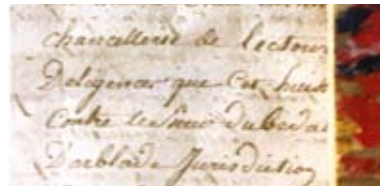 chancellerie de lectour
Deligences que Cet huis
Contre le Sieur dubarda
D'arblade Jurisdiction